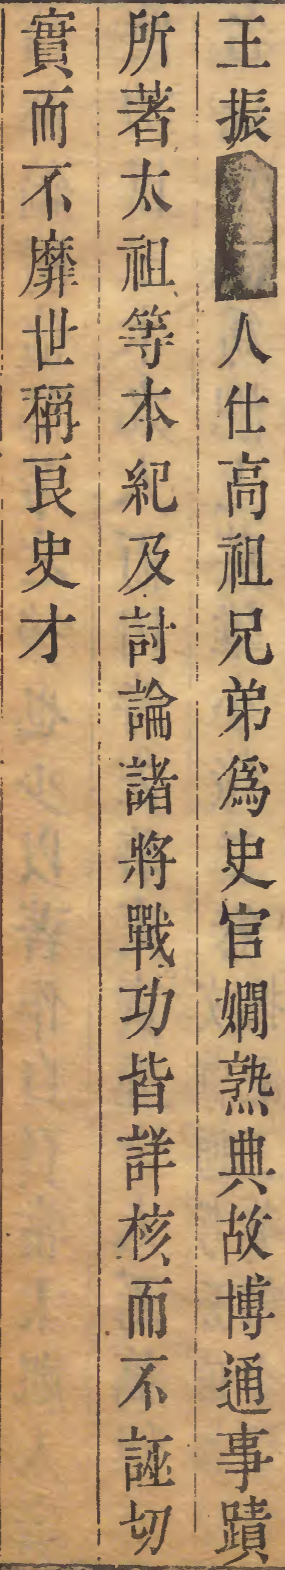 王振人仕高祖兄弟爲史官嫺熟典故博通事蹟
所著太祖等本紀及討論諸將戰功皆詳核而不誣切
實而不靡世稱良史才